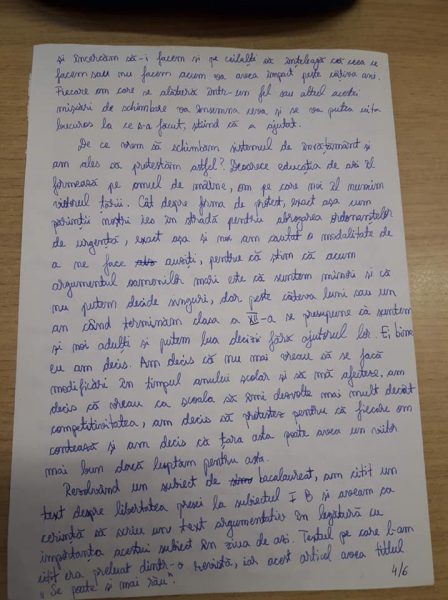 și încercăm să-i facem și pe ceilalți să înțeleagă că ceea ce
facem sau nu facem acum va avea impact peste câțiva ani.
Fiecare om care se alătură într-un fel sau altul acestei
mișcări de schimbare va însemna ceva și se va putea uita
bucuros la ce s-a făcut, știind că a ajutat.
De ce vrem să schimbăm sistemul de învățământ și
am ales să protestăm astfel? Deoarece educația de azi îl
formează pe omul de mâine, om pe care noi îl numim
viitorul țării. Cât despre forma de protest, exact așa cum
părinții noștri ies în stradă pentru abrogarea ordonanțelor
de urgență, exact așa și noi am căutat o modalitate de
a ne face auziți, pentru că știm că acum
argumentul oamenilor mari este că suntem minori și că
nu putem decide singuri, dar peste câteva luni sau un
an când terminăm clasa a XII-a se presupune că suntem
și noi adulți și putem lua decizii fără ajutorul lor. Ei bine
eu am decis. Am decis că nu mai vreau să se facă
modificări în timpul anului școlar și să mă afecteze, am
decis că vreau ca școala să îmi dezvolte mai mult decât
competitivitatea, am decis să protestez pentru că fiecare om
contează și am decis că țara asta poate avea un viitor
mai bun dacă luptăm pentru asta.
Rezolvând un subiect de bacalaureat, am citit un
text despre libertatea presei la subiectul I B și aveam ca
cerință să scriu un text argumentativ în legătură cu
importanța acestui subiect în ziua de azi. Textul pe care l-am
citit era preluat dintr-o revistă, iar acest articol avea titlul
"Se poate și mai rău".
4/6